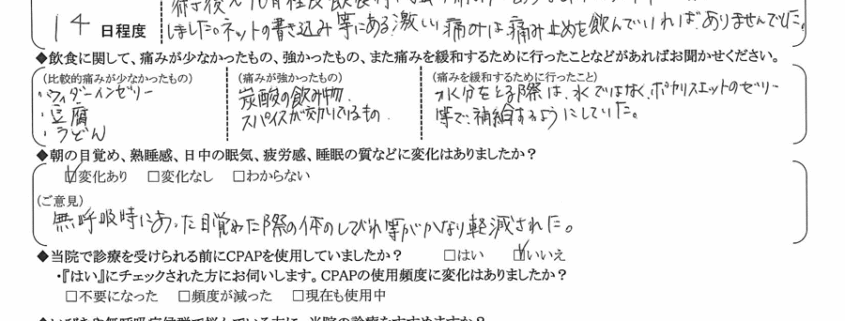 14 日程度
しました。ネットの書き込み等にある激しい痛みは痛み止めを飲んでいれば、ありませんでした。
◆飲食に関して、痛みが少なかったもの、強かったもの、また痛みを緩和するために行ったことなどがあればお聞かせください。
(比較的痛みが少なかったもの)
・ウィダーインゼリー
・豆腐
・うどん
(痛みが強かったもの)
炭酸の飲み物、
スパイスが効いているもの
(痛みを緩和するために行ったこと)
水分をとる際は、水ではなく、ポカリスエットのゼリー
等で、補給するようにしていた。
◆朝の目覚め、熟睡感、日中の眠気、疲労感、睡眠の質などに変化はありましたか？
☑変化あり □変化なし □わからない
(ご意見)
無呼吸時にあった目覚めた際の体のしびれ等がかなり軽減された。
◆当院で診療を受けられる前にCPAPを使用していましたか？ □はい ☑いいえ
・『はい』にチェックされた方にお伺いします。CPAPの使用頻度に変化はありましたか？
□不要になった □頻度が減った □現在も使用中